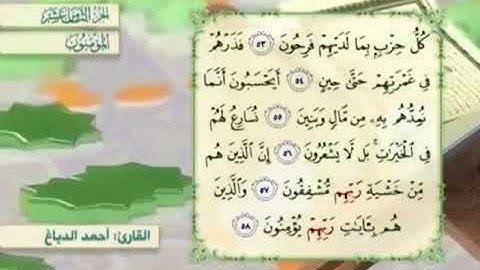 الجزء الثامن عشر
المؤمنون
كُلُّ حِزْبٍۭ بِمَا لَدَيْهِمْ فَرِحُونَ ٥٣ فَذَرْهُمْ
فِى غَمْرَتِهِمْ حَتَّىٰ حِينٍ ٥٤ أَيَحْسَبُونَ أَنَّمَا
نُمِدُّهُم بِهِۦ مِن مَّالٍ وَبَنِينَ ٥٥ نُسَارِعُ لَهُمْ
فِى ٱلْخَيْرَٰتِ ۚ بَل لَّا يَشْعُرُونَ ٥٦ إِنَّ ٱلَّذِينَ هُم
مِّنْ خَشْيَةِ رَبِّهِم مُّشْفِقُونَ ٥٧ وَٱلَّذِينَ
هُم بِـَٔايَٰتِ رَبِّهِمْ يُؤْمِنُونَ ٥٨
القارئ: أحمد الدباغ